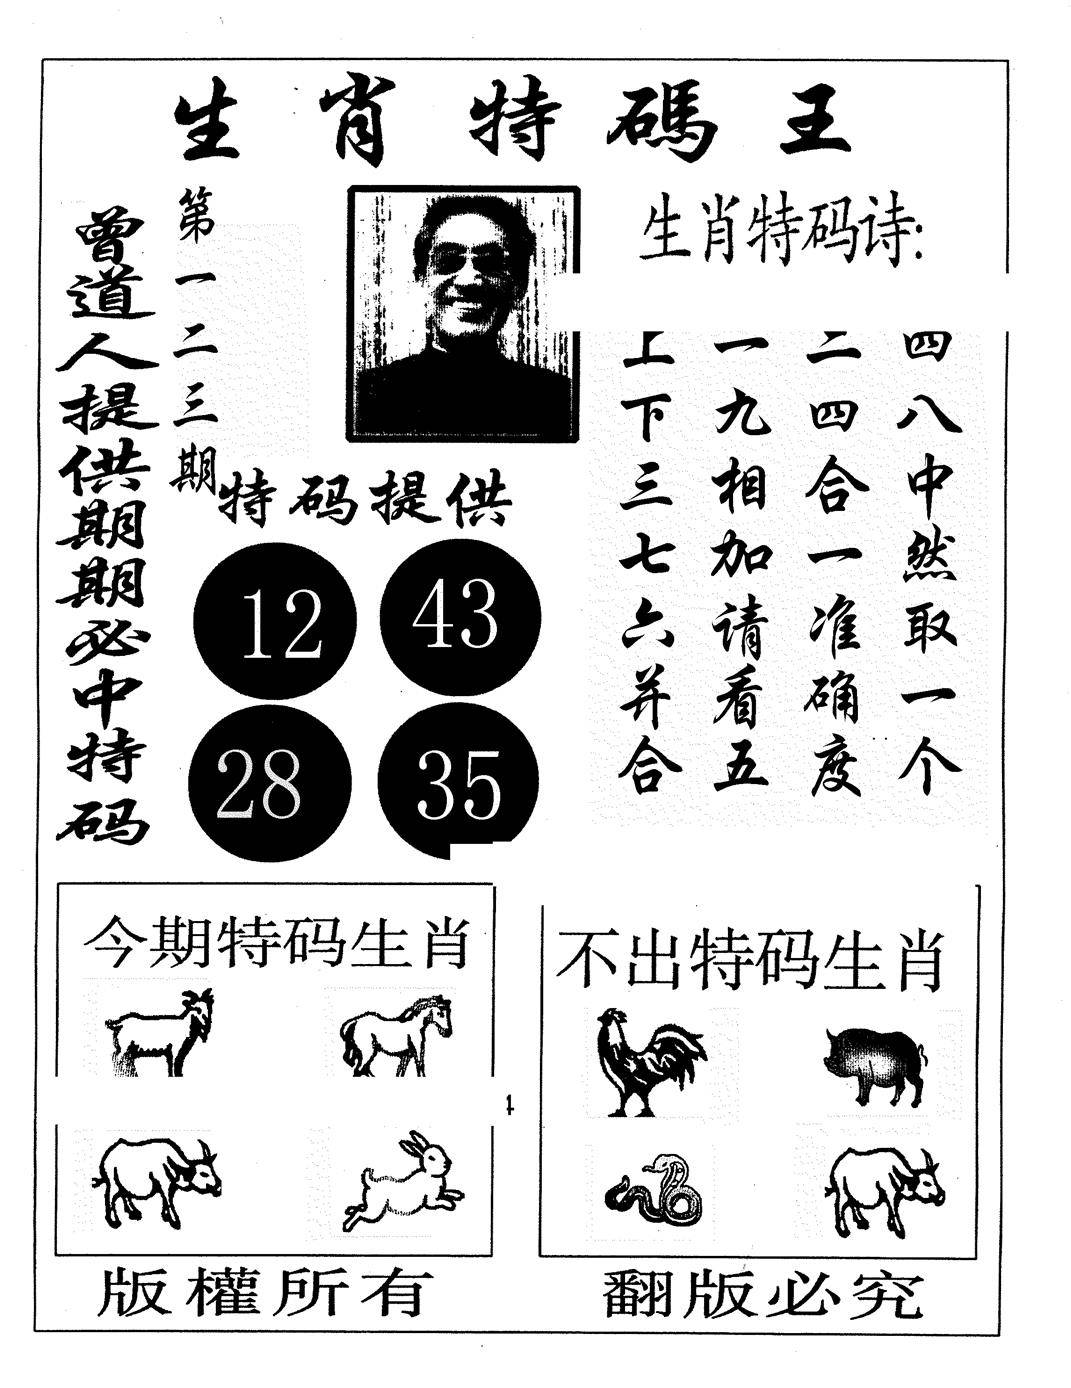 生肖特碼王
曾道人提供期期必中特码
第一二三期
生肖特码诗:
上下三七六并合
一九相加请看五
二四合一准确度
四八中然取一个
特码提供
12
43
28
35
今期特码生肖
不出特码生肖
版權所有
翻版必究